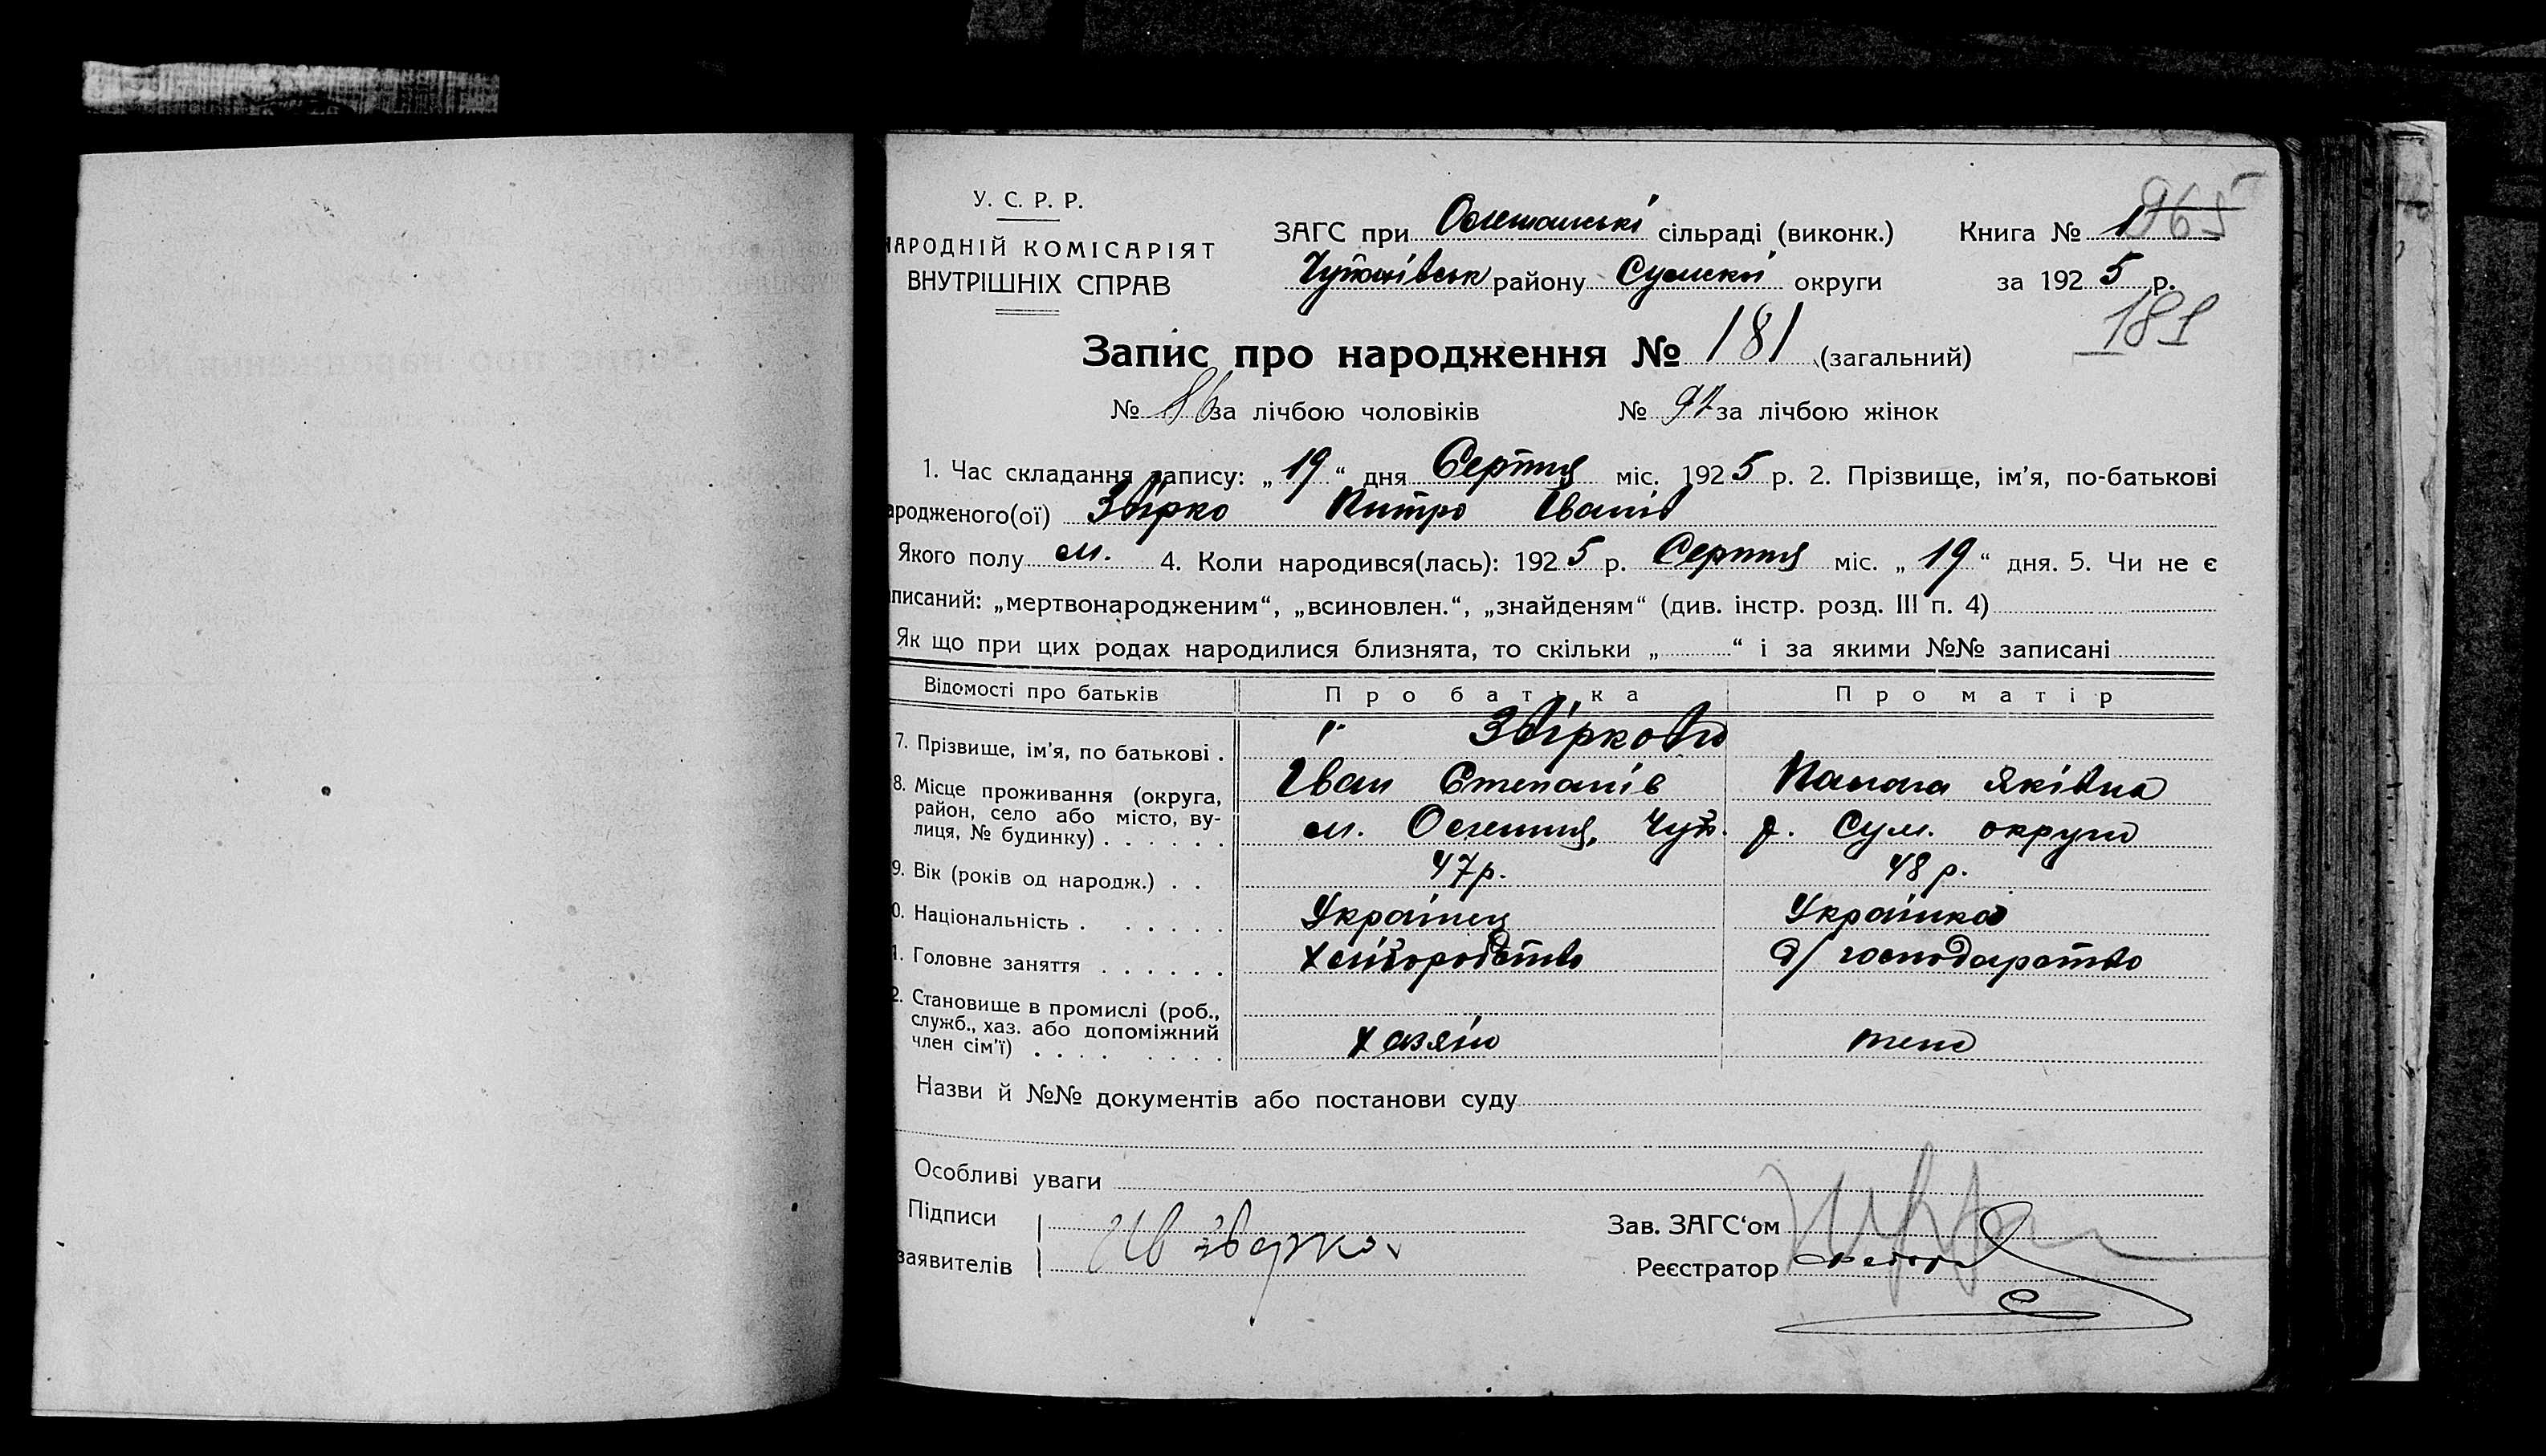 У. С. Р. Р.
НАРОДНІЙ КОМІСАРІЯТ
ВНУТРІШНІХ СПРАВ
ЗАГС при сільраді (виконк.)
району Сумскої округи
Книга № 1 965
за 1925 р.
181
Запис про народження № 181 (загальний)
№ 86 за лічбою чоловіків № 92 за лічбою жінок
1. Час складання запису: „19“ дня Серпня міс. 1925 р. 2. Прізвище, ім’я, по-батькові
ародженого(ої) Звірко Митро Іванів
Якого полу м. 4. Коли народився(лась): 1925 р. Серпня міс. „19“ дня. 5. Чи не є
писаний: „мертвонародженим“, „всиновлен.“, „знайденям“ (див. інстр. розд. III п. 4)
Як що при цих родах народилися близнята, то скільки „ “ і за якими №№ записані
Відомості про батьків Про батька Про матір
7. Прізвище, ім’я, по батькові . Звіркови
Іван Степанів Яківна
8. Місце проживання (округа, район, село або місто, ву-
лиця, № будинку) . . . . . . м. Чуп. р. Сум. округи
9. Вік (років од народж.) . . 47 р. 48 р.
0. Національність . . . . . . Українец Українка
1. Головне заняття . . . . . . хліборобство д/господарство
2. Становище в промислі (роб.,
служб., хаз. або допоміжний
член сім’ї) . . . . . . . . хазяїн
Назви й №№ документів або постанови суду
Особливі уваги
Підписи
заявителів
Зав. ЗАГС‘ом
Реєстратор